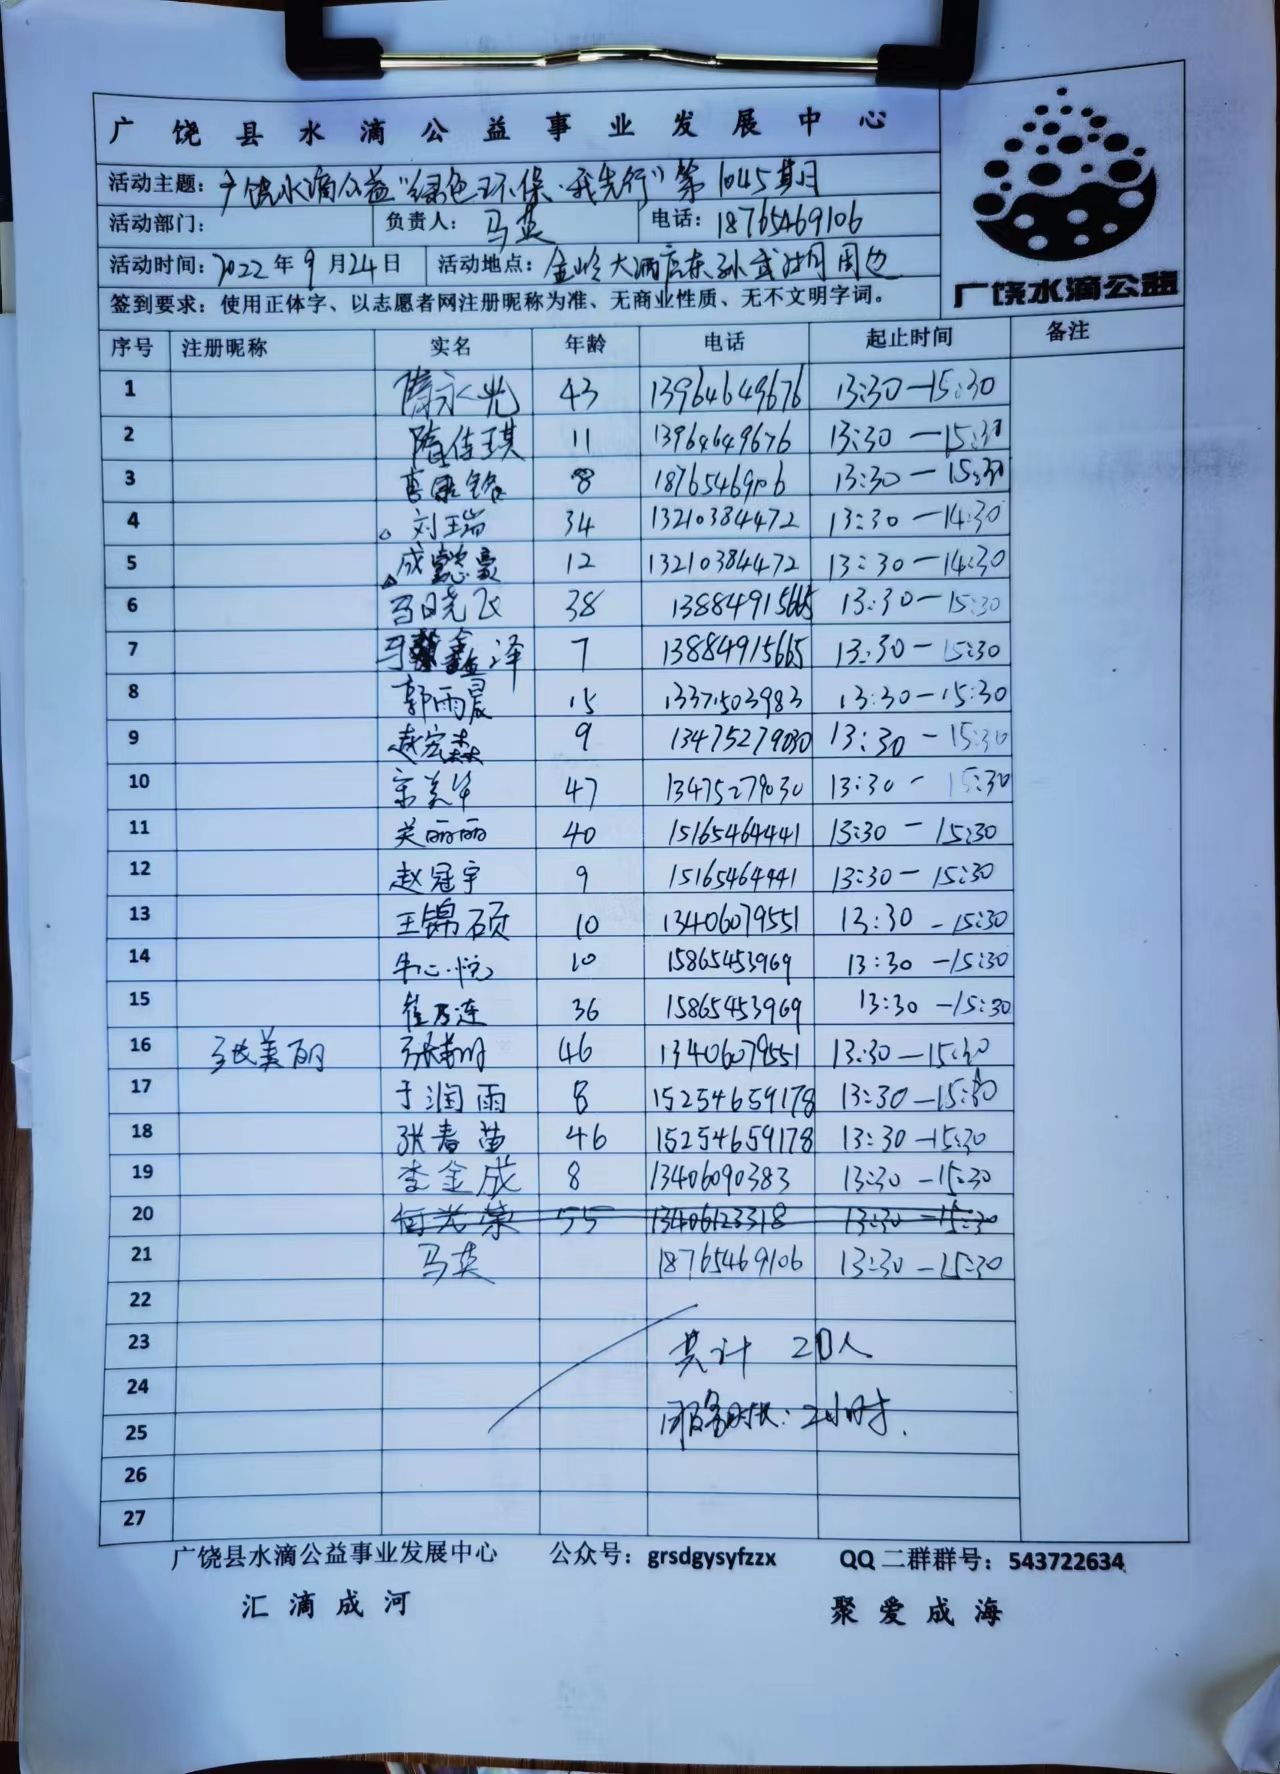 广饶县水滴公益事业发展中心
活动主题：广饶水滴公益“绿色环保·我先行”第1045期月
活动部门： 负责人：马英 电话：18765469106
活动时间：2022年9月24日 活动地点：金岭大酒店东孙武湖周边
签到要求：使用正体字、以志愿者网注册昵称为准、无商业性质、无不文明字词。
广饶水滴公益
序号 注册昵称 实名 年龄 电话 起止时间 备注
1 隋永光 43 13964649676 13:30—15:30
2 隋佳琪 11 13964649676 13:30—15:30
3 8 18765469106 13:30—15:30
4 刘玉瑞 34 13210384472 13:30—14:30
5 成懿豪 12 13210384472 13:30—14:30
6 马晓飞 38 13884915665 13:30—15:30
7 马鑫泽 7 13884915665 13:30—15:30
8 郭雨晨 15 13371503983 13:30—15:30
9 赵宏森 9 13475279030 13:30—15:30
10 宗美华 47 13475279030 13:30—15:30
11 吴丽丽 40 15165464441 13:30—15:30
12 赵冠宇 9 15165464441 13:30—15:30
13 王锦硕 10 13406079551 13:30—15:30
14 牛心悦 10 15865453969 13:30—15:30
15 崔乃连 36 15865453969 13:30—15:30
16 张美丽 张美丽 46 13406079551 13:30—15:30
17 于润雨 8 15254659178 13:30—15:30
18 张春苗 46 15254659178 13:30—15:30
19 李金成 8 13406090383 13:30—15:30
20 荣 55 13406123318 13:30—15:30
21 马英 18765469106 13:30—15:30
22
23 共计 20人
24
25 服务时长：2小时.
26
27
广饶县水滴公益事业发展中心 公众号：grsdgysyfzzx QQ二群群号：543722634
汇滴成河 聚爱成海